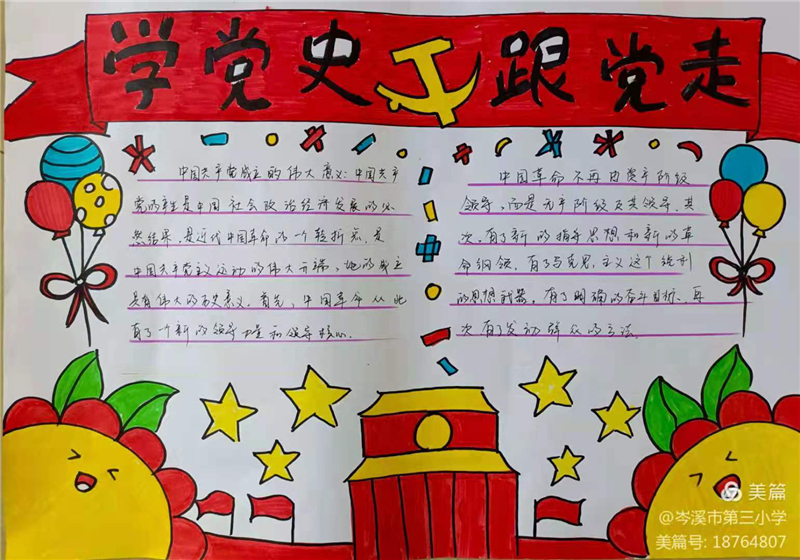 学党史跟党走
中国共产党成立的伟大意义:中国共产
党的产生是中国社会政治经济发展的必
然结果,是近代中国革命的一个转折点,是
中国共产党主义运动的伟大开端,她的成立
具有伟大的历史意义,首先,中国革命从此
有了一个新的领导力量和领导核心.
中国革命不再由资产阶级
领导,而是无产阶级及其领导,其
次,有了新的指导思想和新的革
命纲领,有了马克思主义这个锐利
的思想武器,有了明确的奋斗目标,再
次有了发动群众的方法.
美篇
@岑溪市第三小学
美篇号: 18764807